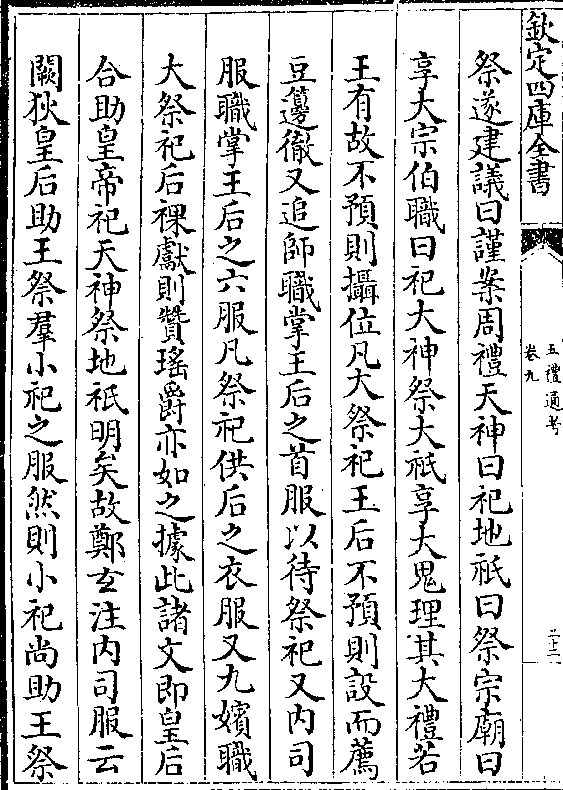 欽定四庫全書
五禮通考
卷九
二十二
祭遂建議曰謹案周禮天神曰祀地祇曰祭宗廟曰
享大宗伯職曰祀大神祭大祇享大鬼理其大禮若
王有故不預則攝位凡大祭祀王后不預則設而薦
豆籩徹又追師職掌王后之首服以待祭祀又内司
服職掌王后之六服凡祭祀供后之衣服又九嬪職
大祭祀后祼獻則贊瑤爵亦如之據此諸文即皇后
合助皇帝祀天神祭地祇明矣故鄭玄注内司服云
闕狄皇后助王祭羣小祀之服然則小祀尚助王祭